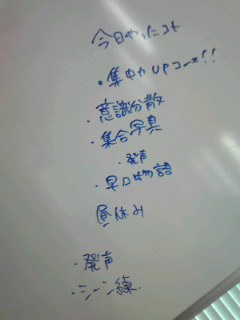 今日やったコト
・集中力UPコース!!
・意識分散
・集合写真
・発声
・早口物語
昼休み
・発声
・シーン練